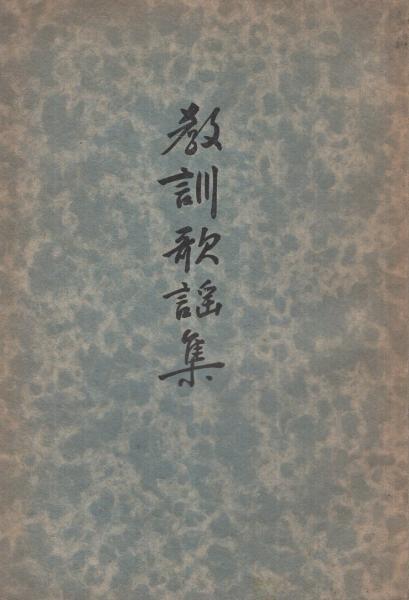 教訓歌謡集